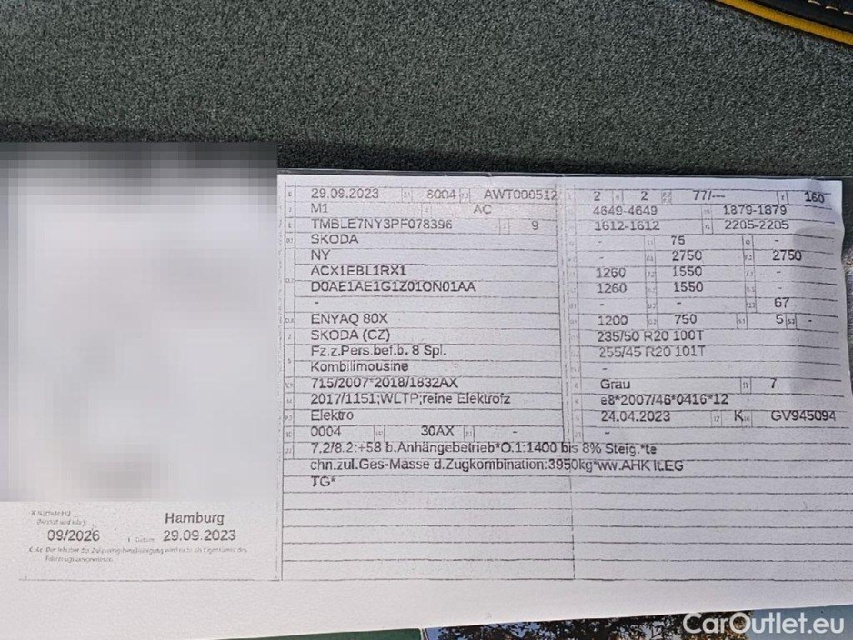 29.09.2023 8004 AWT000512 2 2 77/--- 160
M1 AC 4649-4649 1879-1879
TMBLE7NY3PF078396 9 1612-1612 2205-2205
SKODA - 75 -
NY - 2750 2750
ACX1EBL1RX1 1260 1550 -
D0AE1AE1G1Z01ON01AA 1260 1550 -
- - - 67
ENYAQ 80X 1200 750 5 -
SKODA (CZ) 235/50 R20 100T
Fz.z.Pers.bef.b. 8 Spl. 255/45 R20 101T
Kombilimousine -
715/2007*2018/1832AX Grau 7
2017/1151;WLTP;reine Elektrofz e8*2007/46*0416*12
Elektro 24.04.2023 K GV945094
0004 30AX - -
7.2/8.2:+58 b.Anhängebetrieb*O.1:1400 bis 8% Steig.*te
chn.zul.Ges-Masse d.Zugkombination:3950kg*ww.AHK ILEG
TG*
Hamburg
09/2026 29.09.2023
CarOutlet.eu